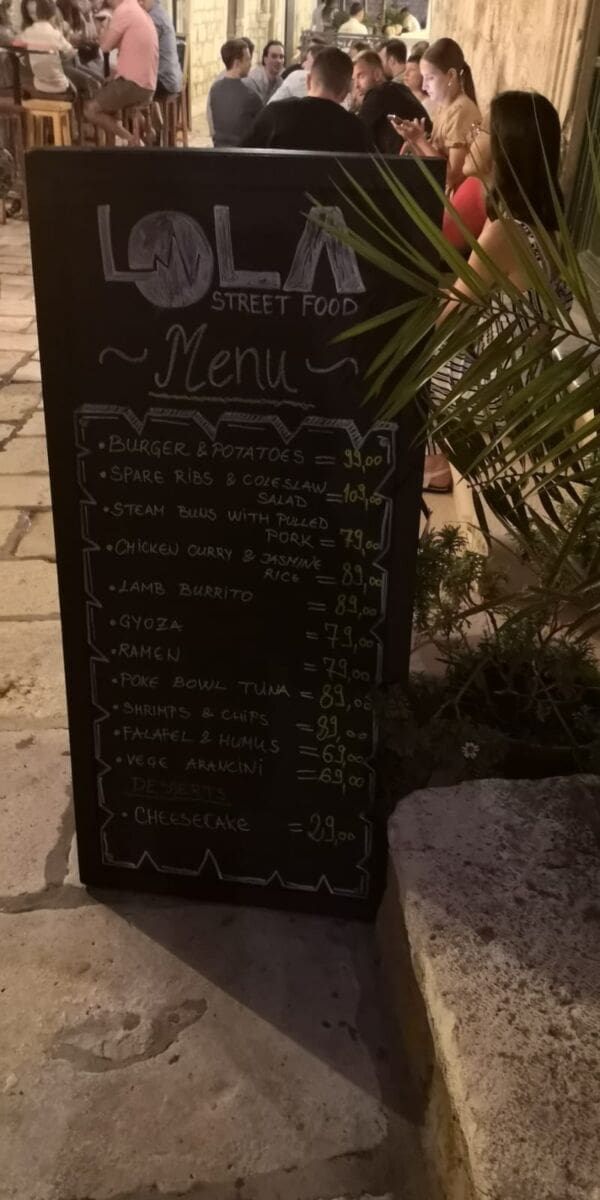 LOLA
STREET FOOD
~ Menu ~
• BURGER & POTATOES = 99,00
• SPARE RIBS & COLESLAW
SALAD = 109,00
• STEAM BUNS WITH PULLED
PORK = 79,00
• CHICKEN CURRY & JASMINE
RICE = 89,00
• LAMB BURRITO = 89,00
• GYOZA = 79,00
• RAMEN = 79,00
• POKE BOWL TUNA = 89,00
• SHRIMPS & CHIPS = 89,00
• FALAFEL & HUMUS = 69,00
• VEGE ARANCINI = 69,00
DESSERTS
• CHEESECAKE = 29,00